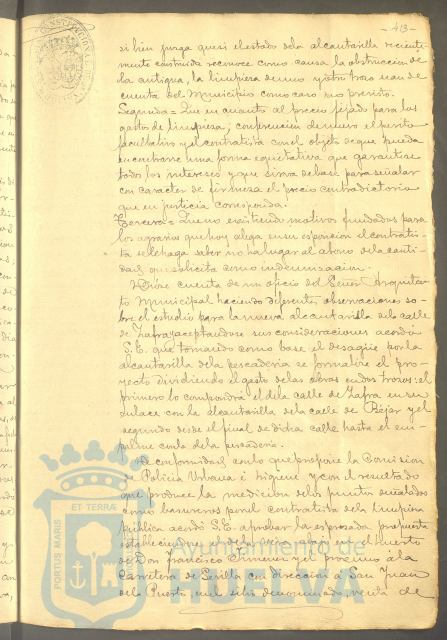 -413-
si bien juzga que si el estado de la alcantarilla reciente-
mente construida reconoce como causa la obstruccion de
la antigua, la limpieza de uno y otro trozo sean de
cuenta del Municipio como caso no previsto.
Segundo= Que en cuanto al precio fijado para los
gastos de limpieza, conferencien de nuevo el perito
facultativo y el contratista con el objeto de que pueda
encontrarse una forma equitativa que garantise
todos los intereses y que sirva de base para señalar
con caracter de firmeza el precio contradictorio
que en justicia corresponda.
Tercero= Que no existiendo motivos fundados para
los agravios que hoy alega en su esposicion el contratis-
ta se le haga saber no ha lugar al abono de la canti-
dad que solicita como indemnizacion.
Dióse cuenta de un oficio del Señor Arquitec-
to Municipal haciendo diferentes observaciones so-
bre el estudio para la nueva alcantarilla de la calle
de Zafra y aceptandose sus consideraciones acordó
S.E. que tomando como base el desagüe por la
alcantarilla de la pescaderia se formalice el pro-
yecto dividiendo el gasto de las obras en dos trozos: el
primero lo compondrá el de la calle de Zafra en su
enlace con la alcantarilla de la calle de Béjar y el
segundo desde el final de dicha calle hasta el em-
palme con la de la pescaderia.
De conformidad con lo que propone la Comision
de Policia Urbana é higiene y con el resultado
que produce la medicion de los puntos señalados
como basureros por el contratista de la limpieza
pública acordó S.E. aprobar la espresada propuesta
estableciendose el de la
Don Francisco Jimenez y el proximo á la
Carretera de Sevilla con direccion á San Juan
del Puerto, en el sitio denominado, venta de
PORTUS MARIS ET TERRA
Ayuntamiento de
HUELVA